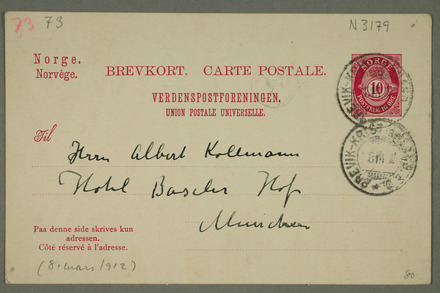 73 73
N3179
Norge.
Norvège.
BREVKORT. CARTE POSTALE.
VERDENSPOSTFORENINGEN,
UNION POSTALE UNIVERSELLE.
NORGE
10
Til
Herrn Albert Kollmann
Hotel Basler Hof
München
BREVIK-KRIST
Paa denne side skrives kun
adressen.
Côté réservé à l'adresse.
(8. mars/912)
80